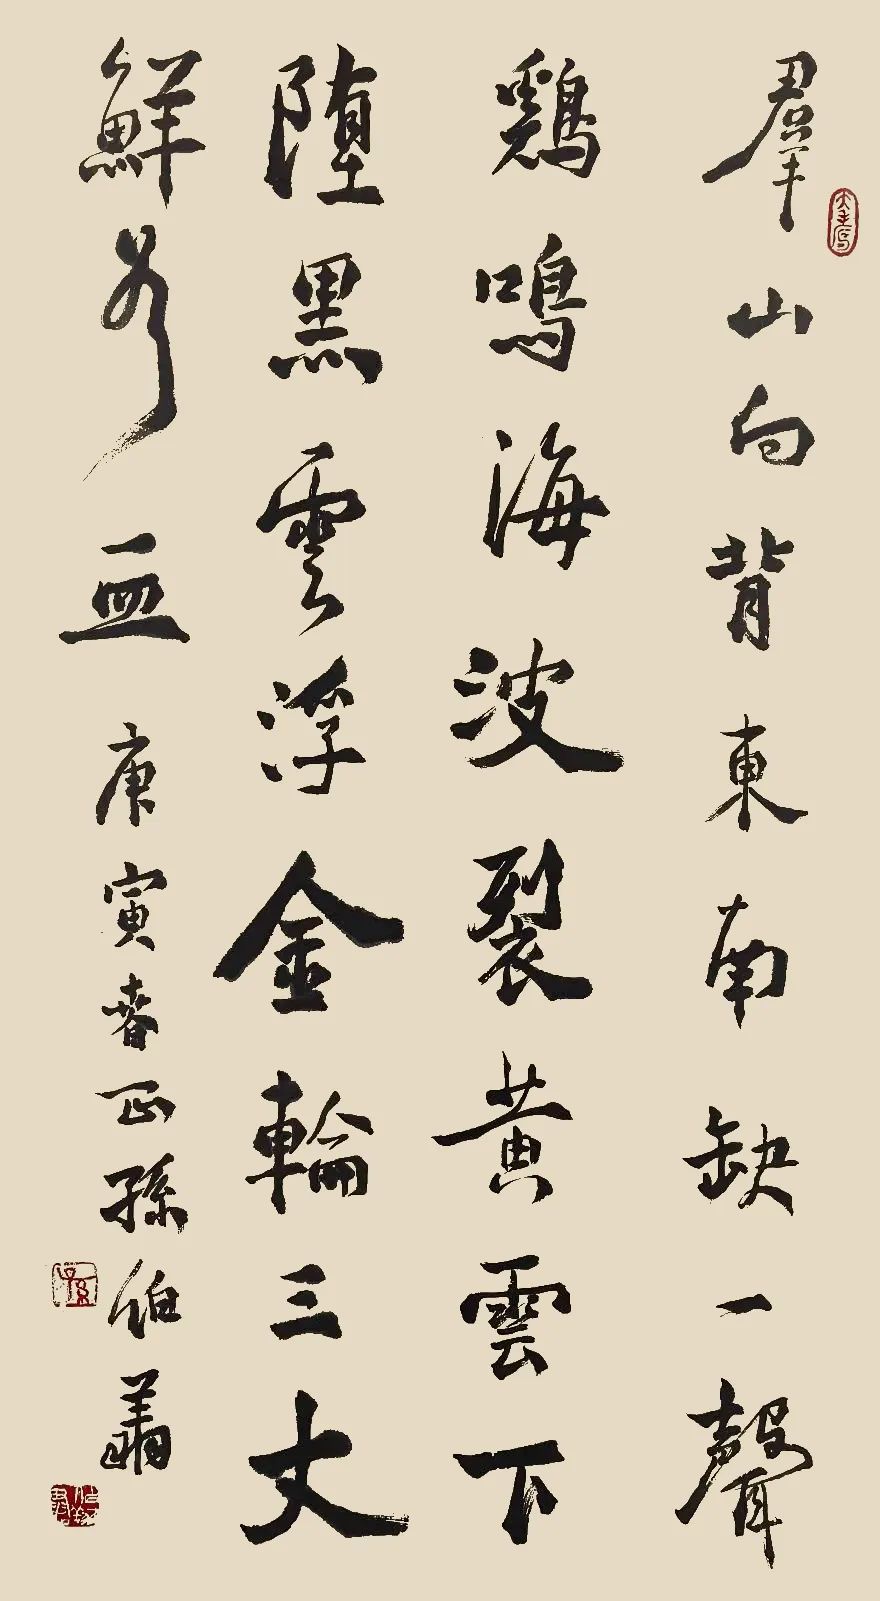 羣山向背東南缺一聲
鷄鳴海波裂黄雲下
墮黑雲浮金輪三丈
鮮於血
庚寅春正孫伯翔